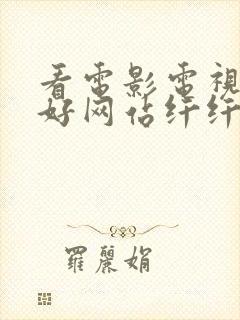 看電影電視
好网佔纤纤
羅麗娟